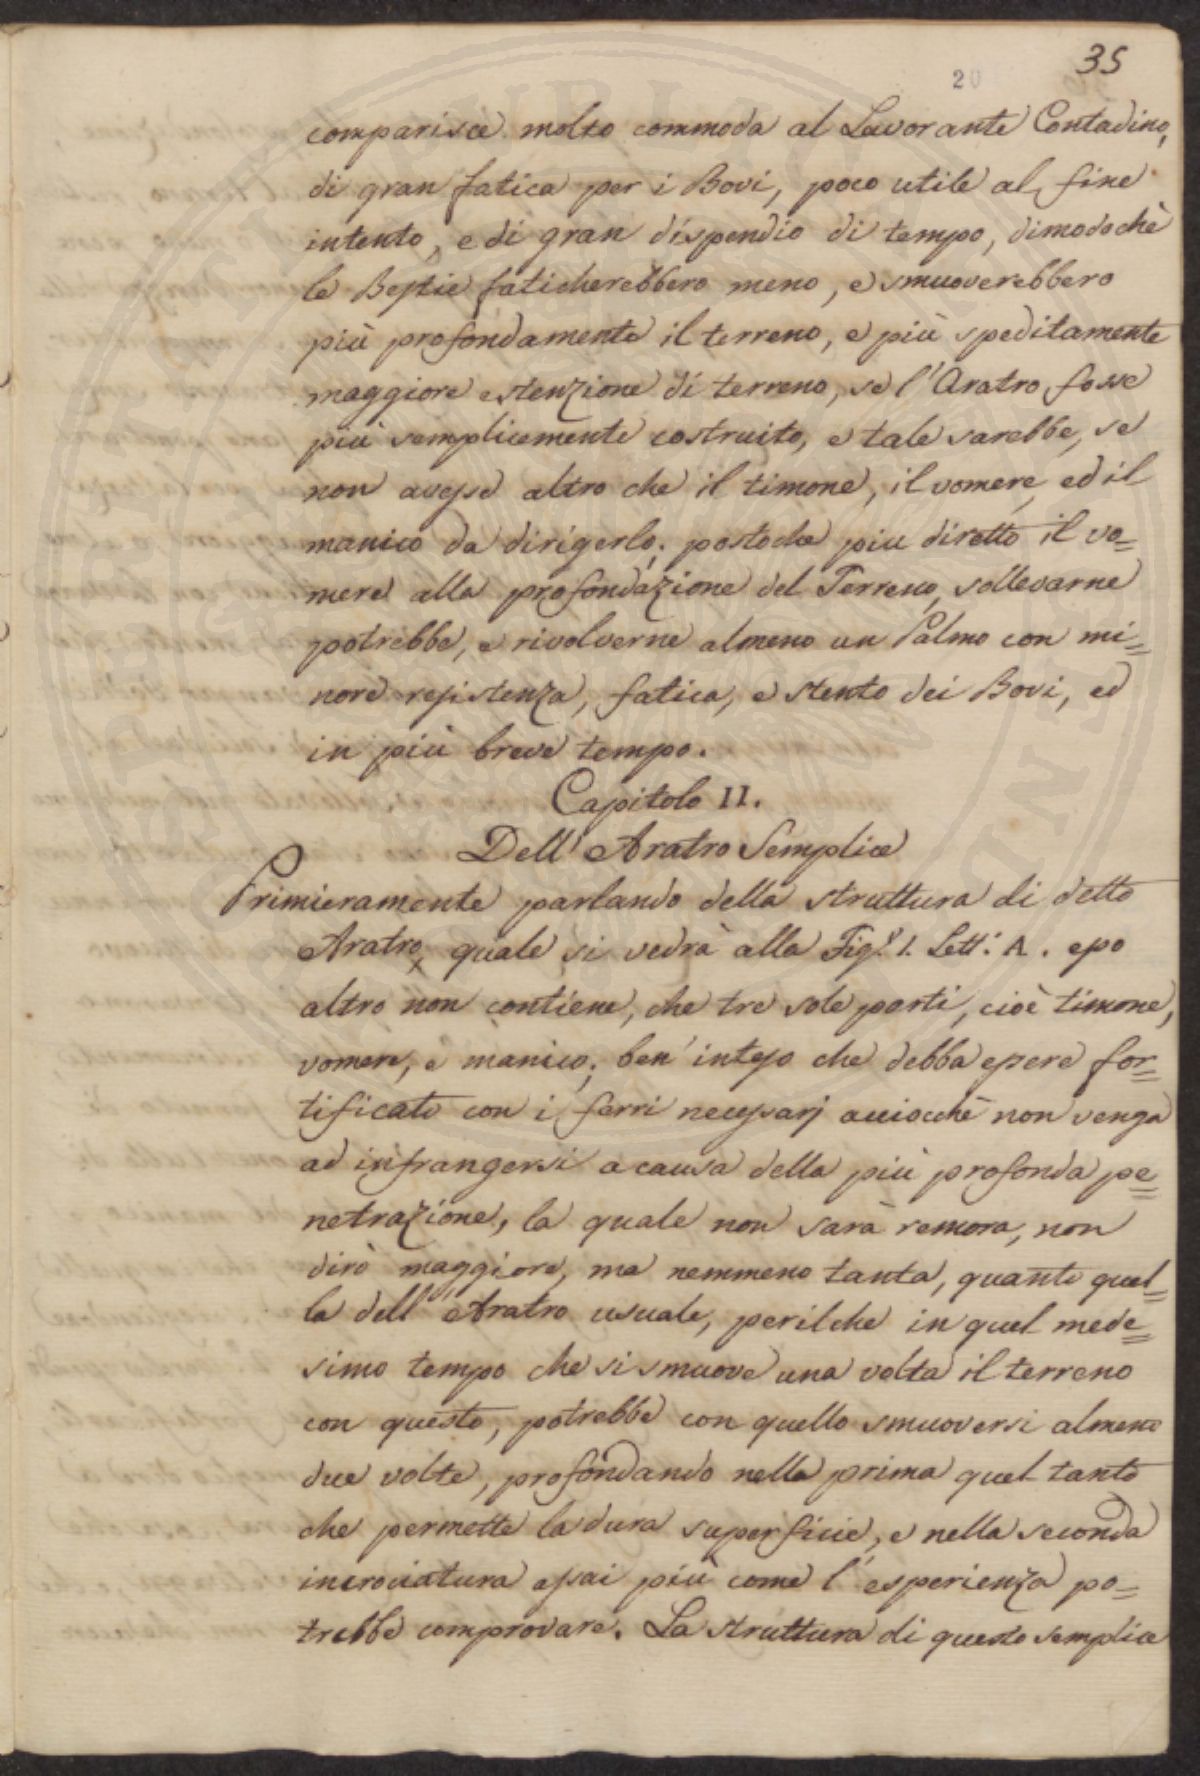 35
20
comparisce molto commoda al Lavorante Contadino,
di gran fatica per i Bovi, poco utile al fine
intento, e di gran dispendio di tempo, dimodochè
le Bestie faticherebbero meno, e smuoverebbero
più profondamente il terreno, e più speditamente
maggiore estenzione di terreno, se l'Aratro fosse
più semplicemente costruito, e tale sarebbe, se
non avesse altro che il timone, il vomere, ed il
manico da dirigerlo; postoche piu diretto il vo=
mere alla profondazione del Terreno, sollevarne
potrebbe, e rivolverne almeno un Palmo con mi=
nore resistenza, fatica, e stento dei Bovi, ed
in più breve tempo.
Capitolo II.
Dell'Aratro Semplice
Primieramente parlando della struttura di detto
Aratro, quale si vedrà alla Fig.ª 1. Lett: A. epo
altro non contiene, che tre sole parti, cioè timone,
vomere, e manico; ben'inteso che debba essere for=
tificato con i ferri necessarj acciocchè non venga
ad infrangersi a causa della più profonda pe=
netrazione, la quale non sarà remora, non
dirò maggiore, ma nemmeno tanta, quanto quel=
la dell'Aratro usuale, perilche in quel mede=
simo tempo che si smuove una volta il terreno
con questo, potrebbe con quello smuoversi almeno
due volte, profondando nella prima quel tanto
che permette la dura superficie, e nella seconda
incrociatura assai più come l'esperienza po=
trebbe comprovare. La struttura di questo semplice